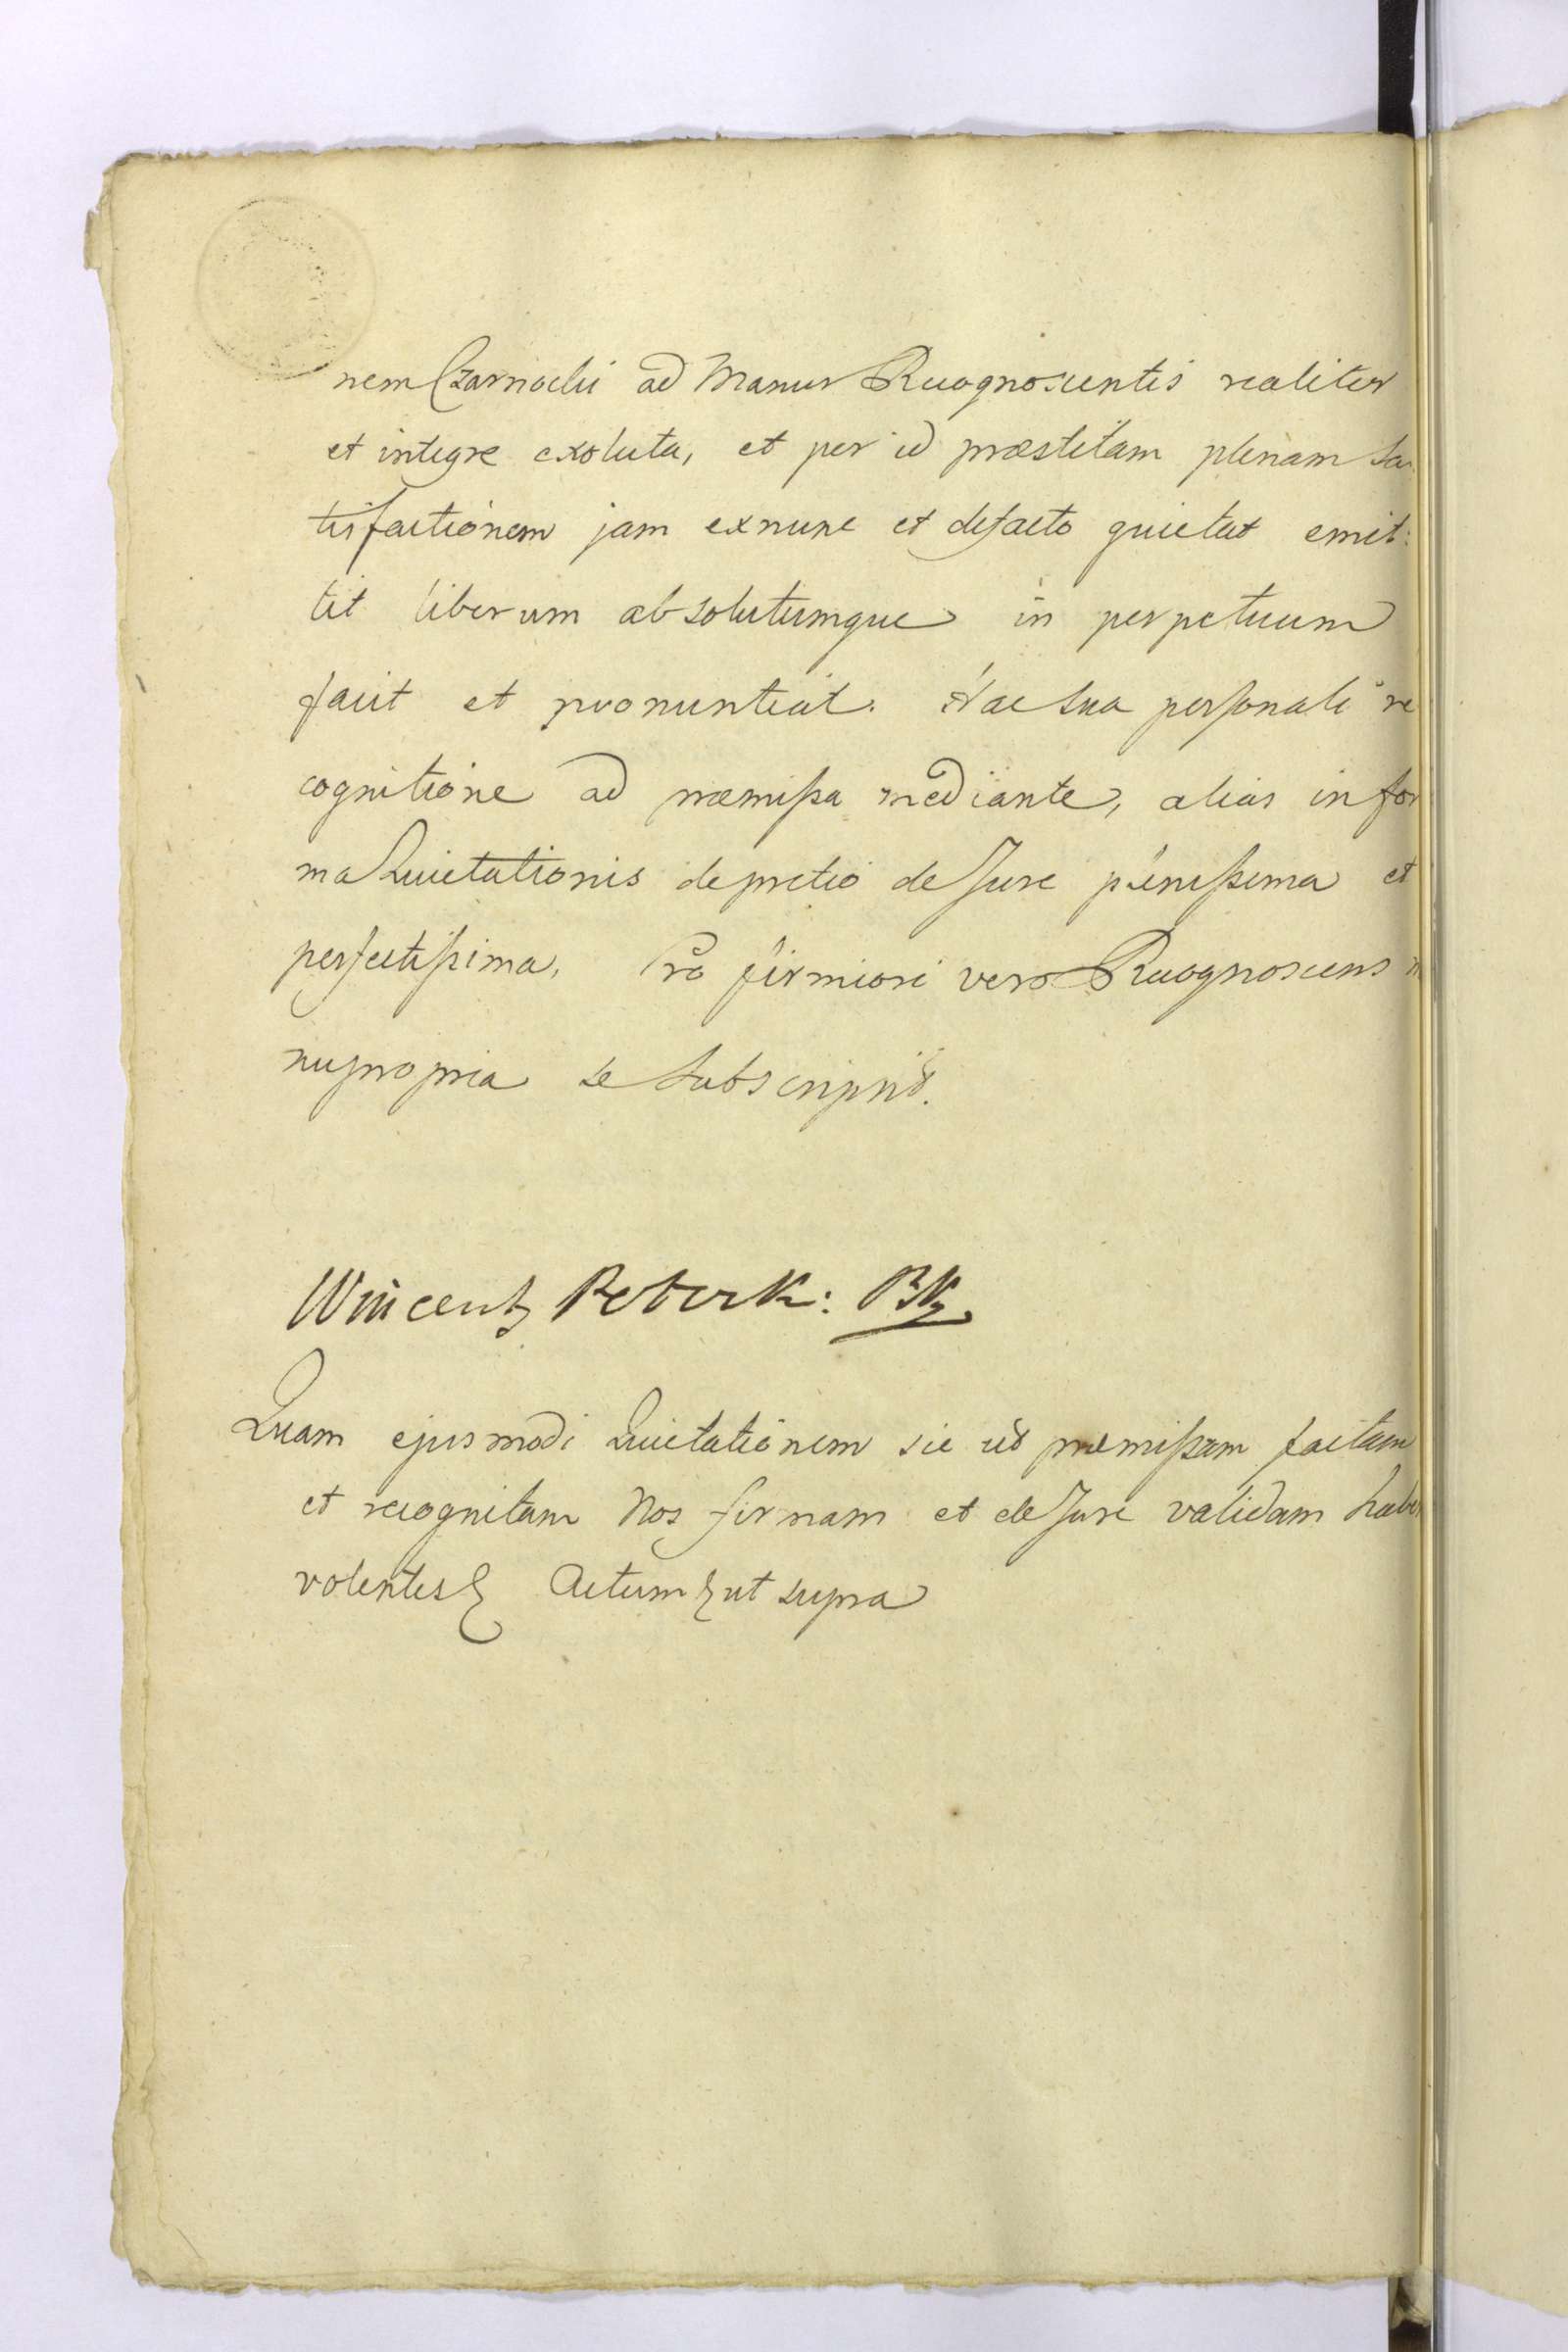 nem Czarnocki ad Manus Recognoscentis realiter
et integre exoluta, et per id præstitam plenam sa
tisfactionem jam exnunc et defacto quietat emit:
tit liberum absolutumque in perpetuum
facit et pronuntiat. Hac sua personali re
cognitione ad præmissa mediante, alias in for
ma Quietationis de pretio de Jure plenissima et
perfectissima. Pro firmiori vero Recognoscens
nupropria se Subscripsit.
Wincenty
Quam ejusmodi Quietationem sic ut præmissam factam
et recognitam Nos firmam et de Jure validam habe
volentes Actum ut supra